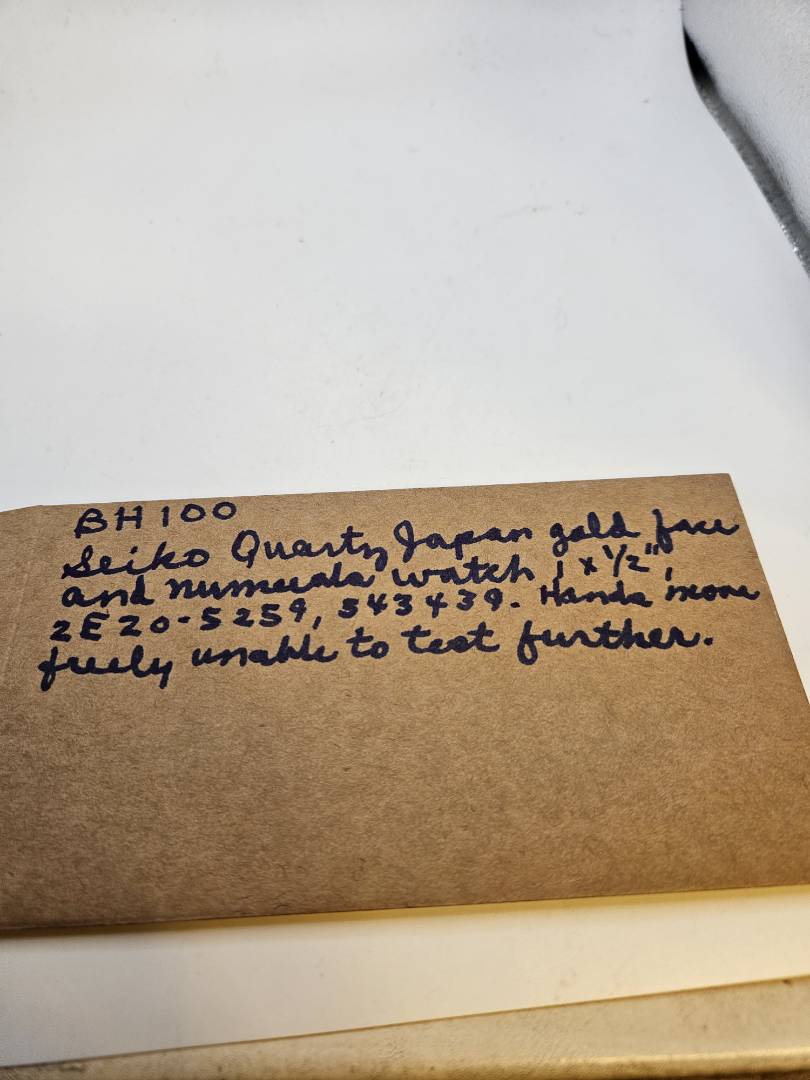 BH 100
Seiko Quartz Japan gold face
and numerals watch 1 x 1/2",
2E20-5259, 543439. Hands move
freely unable to test further.